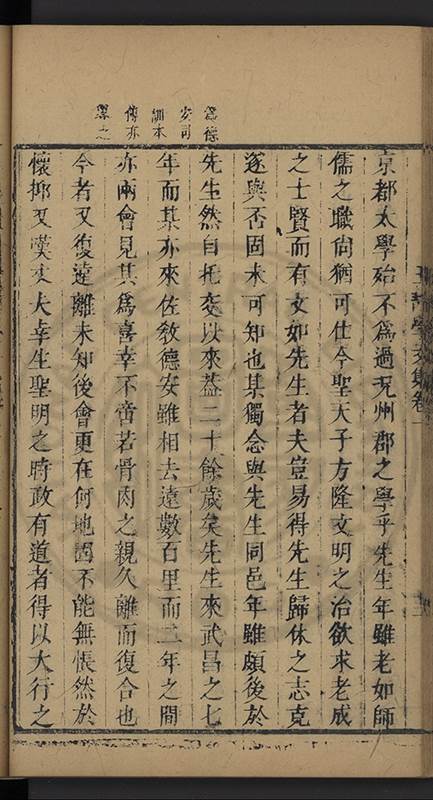 京都太學殆不爲過况州郡之學乎先生年雖老如師
儒之職尚猶可仕今聖天子方隆文明之治欲求老成
之士賢而有文如先生者夫豈易得先生歸休之志克
遂與否固未可知也某獨念與先生同邑年雖頗後於
先生然自托交以來葢二十餘歲矣先生來武昌之七
年而某亦來佐敎德安雖相去遠數百里而三年之間
亦兩會見其爲喜幸不啻若骨肉之親久離而復合也
今者又復遠離未知後會更在何地固不能無悵然於
懷抑又嘆丈夫幸生聖明之時敢有道者得以大行之